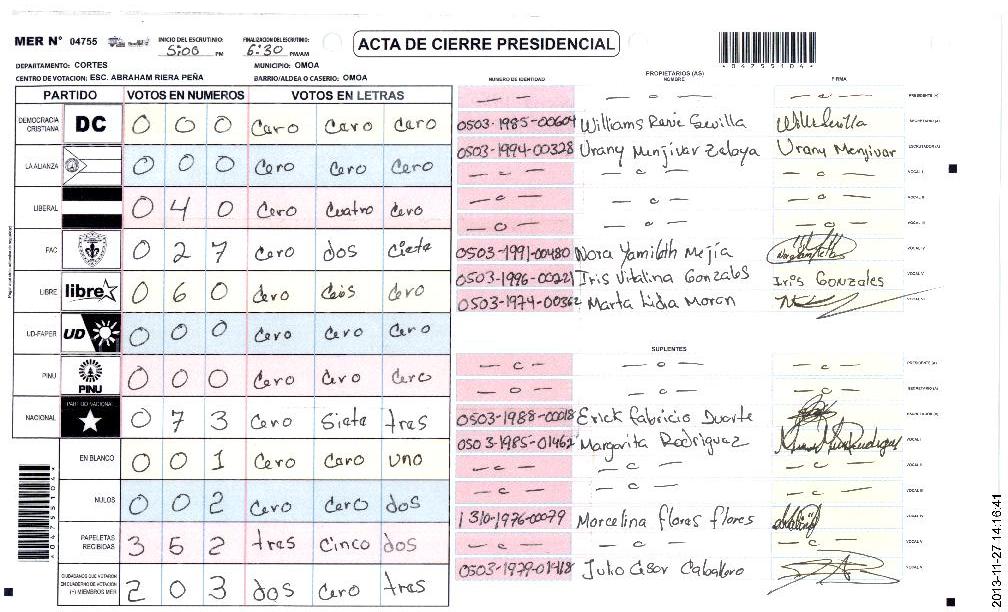 MER N° 04755 INICIO DEL ESCRUTINIO: 5:00 PM FINALIZACION DEL ESCRUTINIO: 6:30 PM/AM
ACTA DE CIERRE PRESIDENCIAL
04755104
DEPARTAMENTO: CORTES MUNICIPIO: OMOA
CENTRO DE VOTACION: ESC. ABRAHAM RIERA PEÑA BARRIO/ALDEA O CASERIO: OMOA
PARTIDO VOTOS EN NUMEROS VOTOS EN LETRAS
DEMOCRACIA CRISTIANA DC 0 0 0 Cero Cero Cero
LA ALIANZA 0 0 0 Cero Cero Cero
LIBERAL 0 4 0 Cero Cuatro Cero
PAC 0 2 7 Cero dos Ciete
LIBRE libre 0 6 0 Cero Ceis Cero
UD-FAPER UD 0 0 0 Cero Cero Cero
PINU PINU 0 0 0 Cero Cero Cero
NACIONAL PARTIDO NACIONAL 0 7 3 Cero Siete tres
EN BLANCO 0 0 1 Cero Cero uno
NULOS 0 0 2 Cero Cero dos
PAPELETAS RECIBIDAS 3 5 2 tres Cinco dos
CIUDADANOS QUE VOTARON EN CUADERNO DE VOTACION (+) MIEMBROS MER 2 0 3 dos Cero tres
04755104
PROPIETARIOS (AS)
NUMERO DE IDENTIDAD NOMBRE FIRMA
— — — o — — o — PRESIDENTE (A)
0503-1985-00604 Williams Rene Sevilla Will Sevilla SECRETARIO (A)
0503-1994-00328 Urany Menjivar Zelaya Urany Menjivar ESCRUTADOR (A)
— c — — o — — o — VOCAL I
— c — — c — — o — VOCAL II
— o — — o — — o — VOCAL III
0503-1991-00480 Nora Yamileth Mejía VOCAL IV
0503-1996-00221 Iris Vitalina Gonzales Iris Gonzales VOCAL V
0503-1974-00362 Marta Lidia Moran
SUPLENTES
— c — — o — — c — PRESIDENTE (A)
— o — — o — — c — SECRETARIO (A)
0503-1988-00018 Erick Fabricio Duarte ESCRUTADOR (A)
0503-1985-01462 Margarita Rodriguez VOCAL I
— c — — c — — c — VOCAL II
— c — — c — — c — VOCAL III
1310-1976-00079 Marcelina flores flores VOCAL IV
— c — — c — — c — VOCAL V
0503-1979-01418 Julio Cesar Caballero
2013-11-27 14:16:41